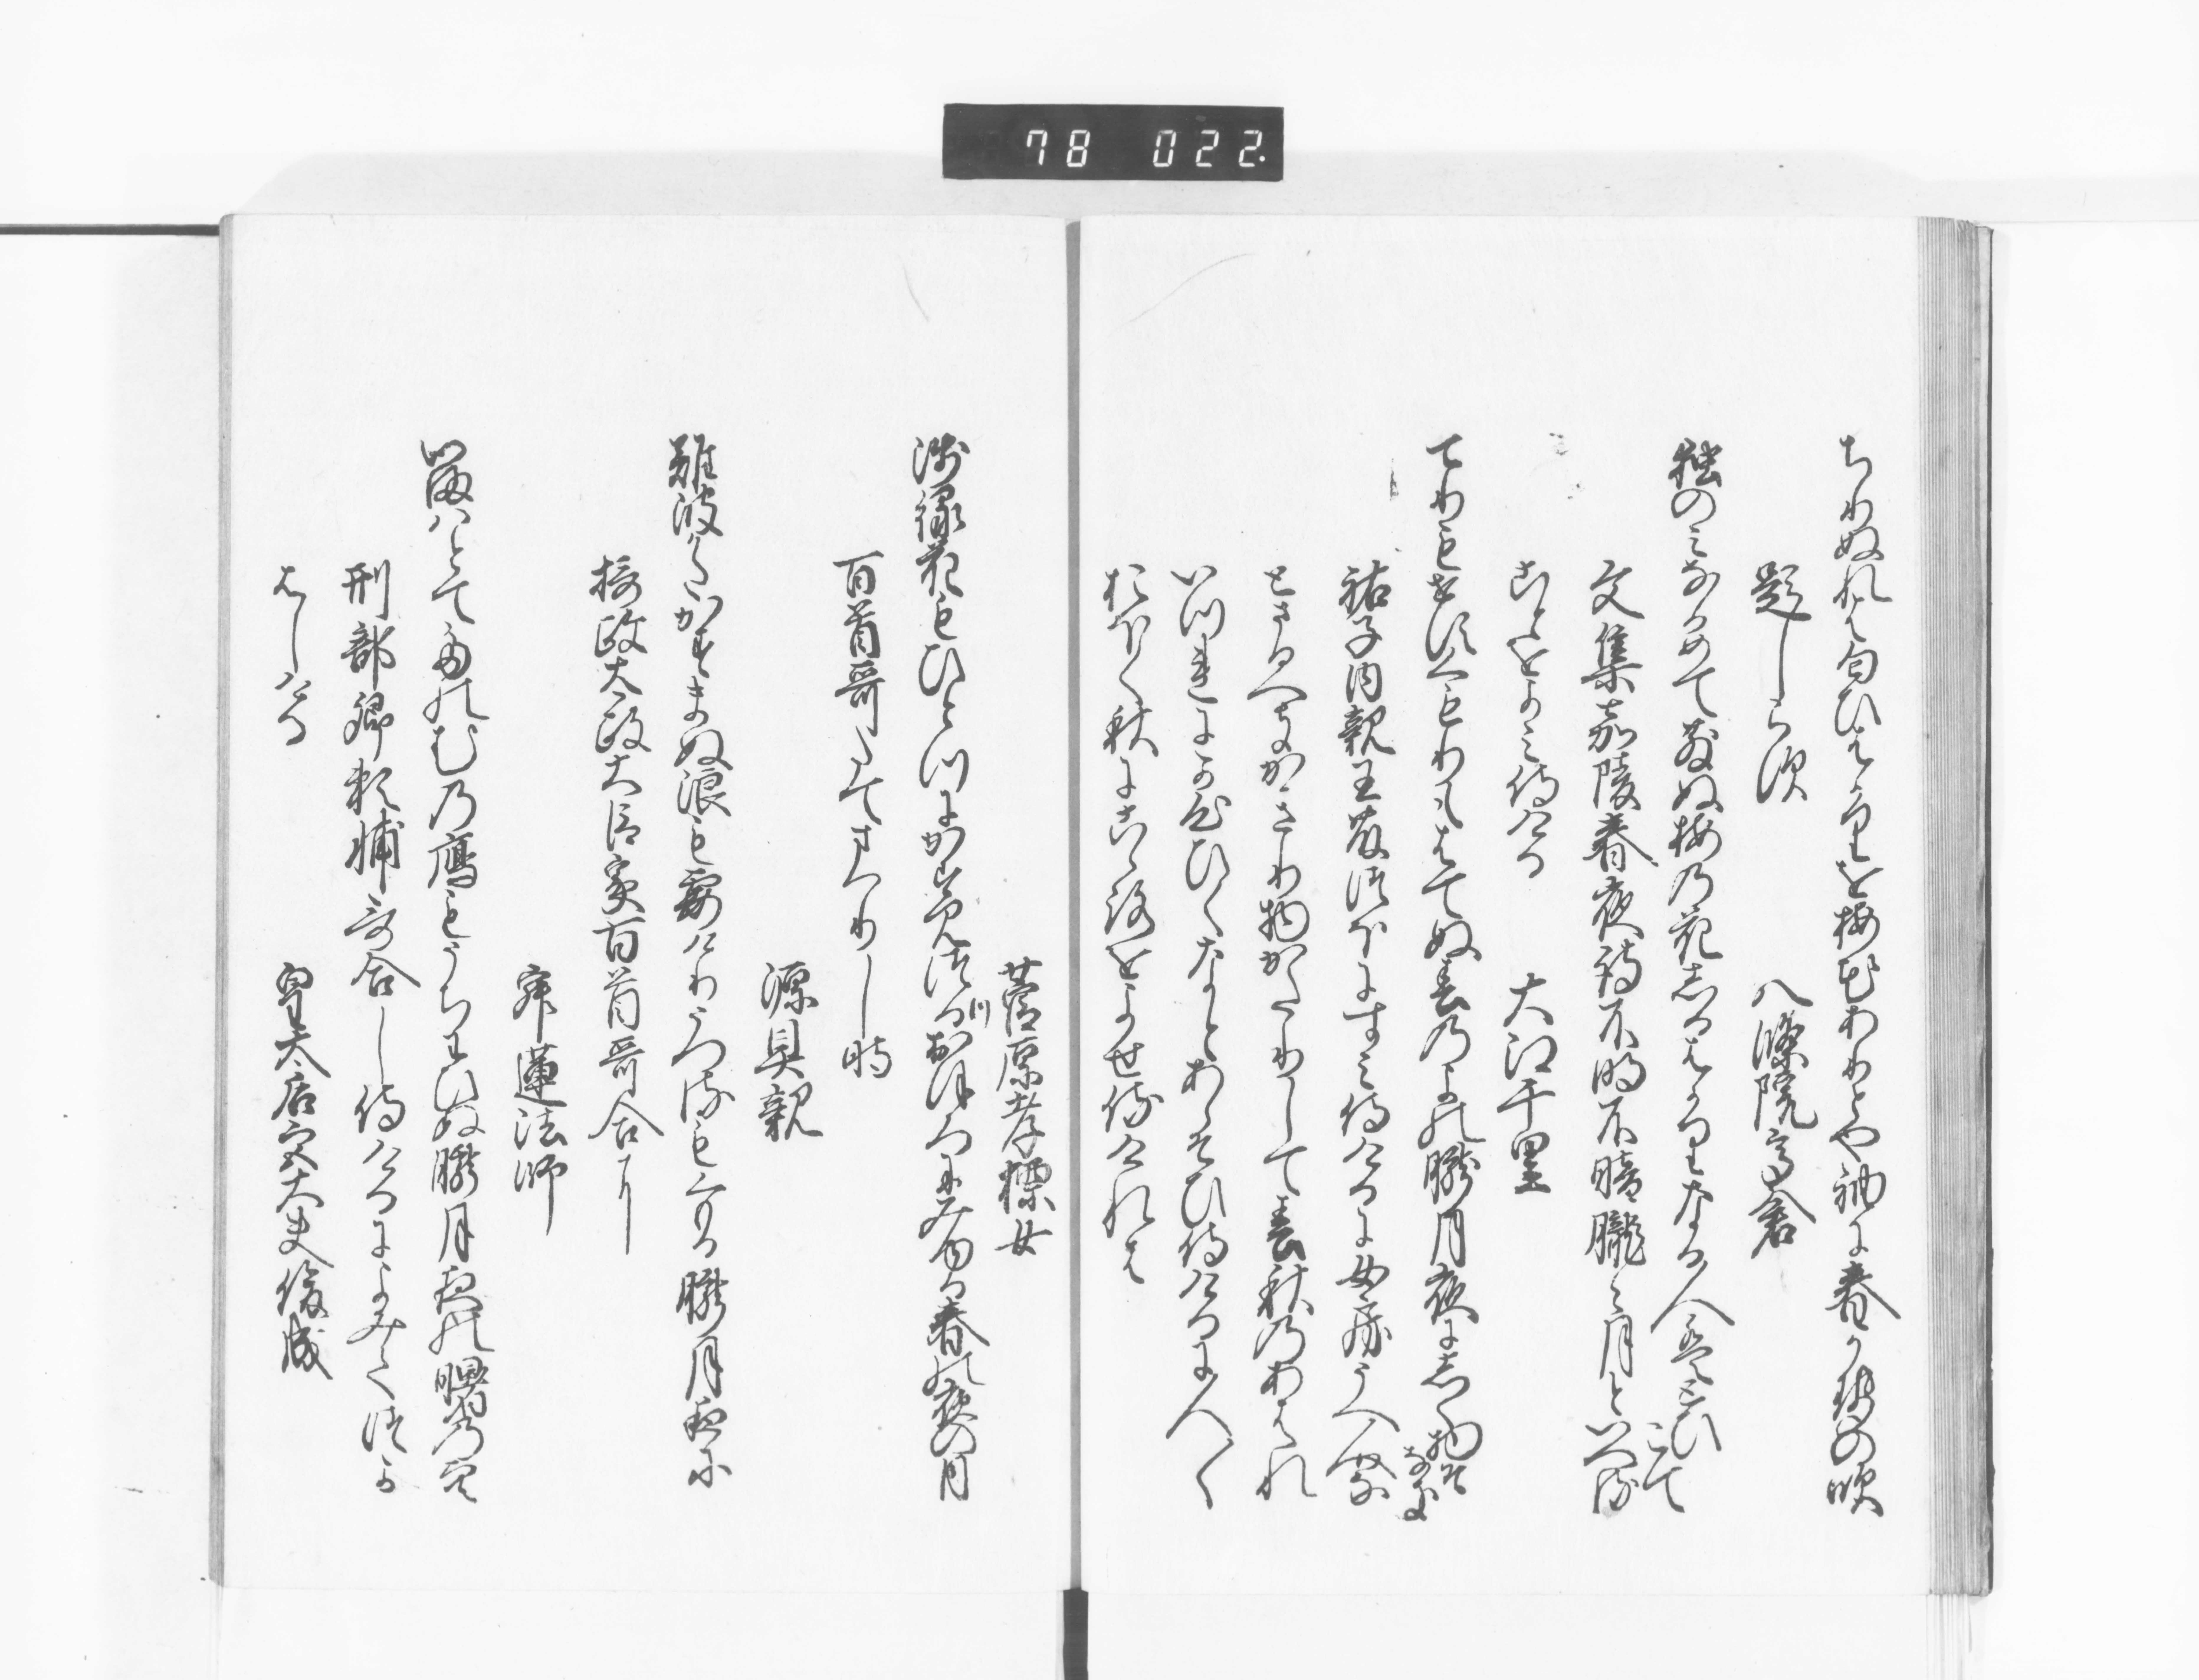 78 022.
ちりぬれは匂ひはかりを梅花ありとや袖に春かせの吹
題しらす 八條院高倉
独のみなかめて散ぬ梅の花しるはかりなる人はとひこて
文集嘉陵春夜詩不明不暗朧々月といへる
ことをよみ侍ける 大江千里
てりもせすくもりもはてぬ春のよの朧月夜にしく物そなき
祐子内親王藤つほにすみ侍けるに女房うへ人なと
さるへきかきり物かたりして春秋のあはれ
いつれにか心ひくなとあらそひ侍けるに人〱
おほく秋にこゝろをよせ侍けれは
菅原孝標女
浅緑花もひとつにかすみつゝおほろにみゆる春の夜の月
百首哥たてまつりし時
源具親
難波かたかすまぬ浪も霞けりうつるもくもる朧月夜に
摂政太政大臣家百首哥合に
寂蓮法師
今はとてたのむの鴈もうちわひぬ朧月夜の曙の空
刑部卿頼輔哥合し侍けるによみてつか
はしける
皇太后宮大夫俊成